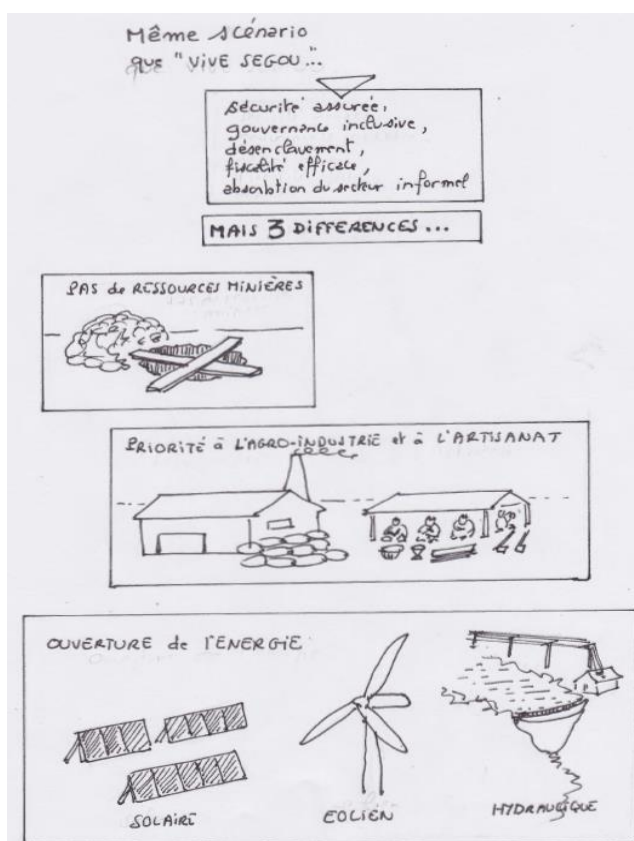 Même scénario
que "VIVE SEGOU...
sécurité assurée,
gouvernance inclusive,
désenclavement,
fiscalité efficace,
absorbtion du secteur informel
MAIS 3 DIFFERENCES...
PAS de RESSOURCES MINIÈRES
PRIORITÉ à L'AGRO-INDUSTRIE et à L'ARTISANAT
OUVERTURE de l'ENERGIE
SOLAIRE
EOLIEN
HYDRAULIQUE